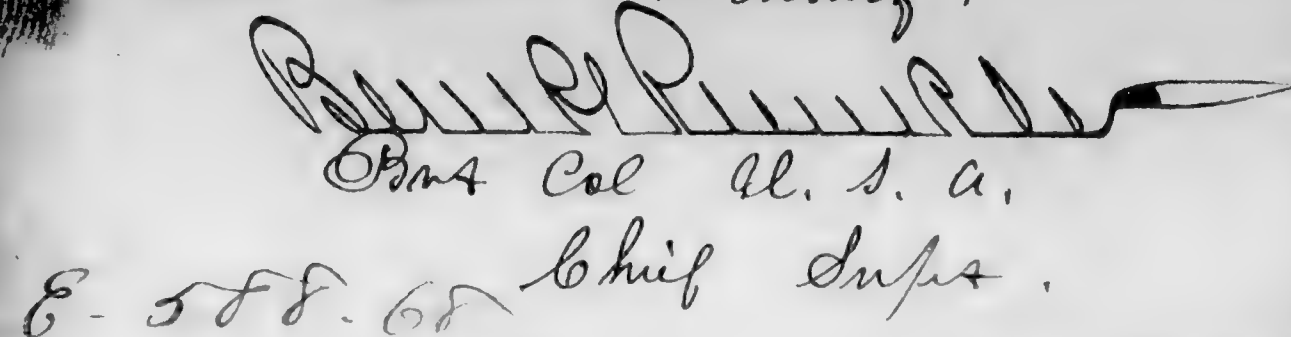 Ben P Runkle
Bvt Col U. S. A.
Chief Supt.
E - 588. 68